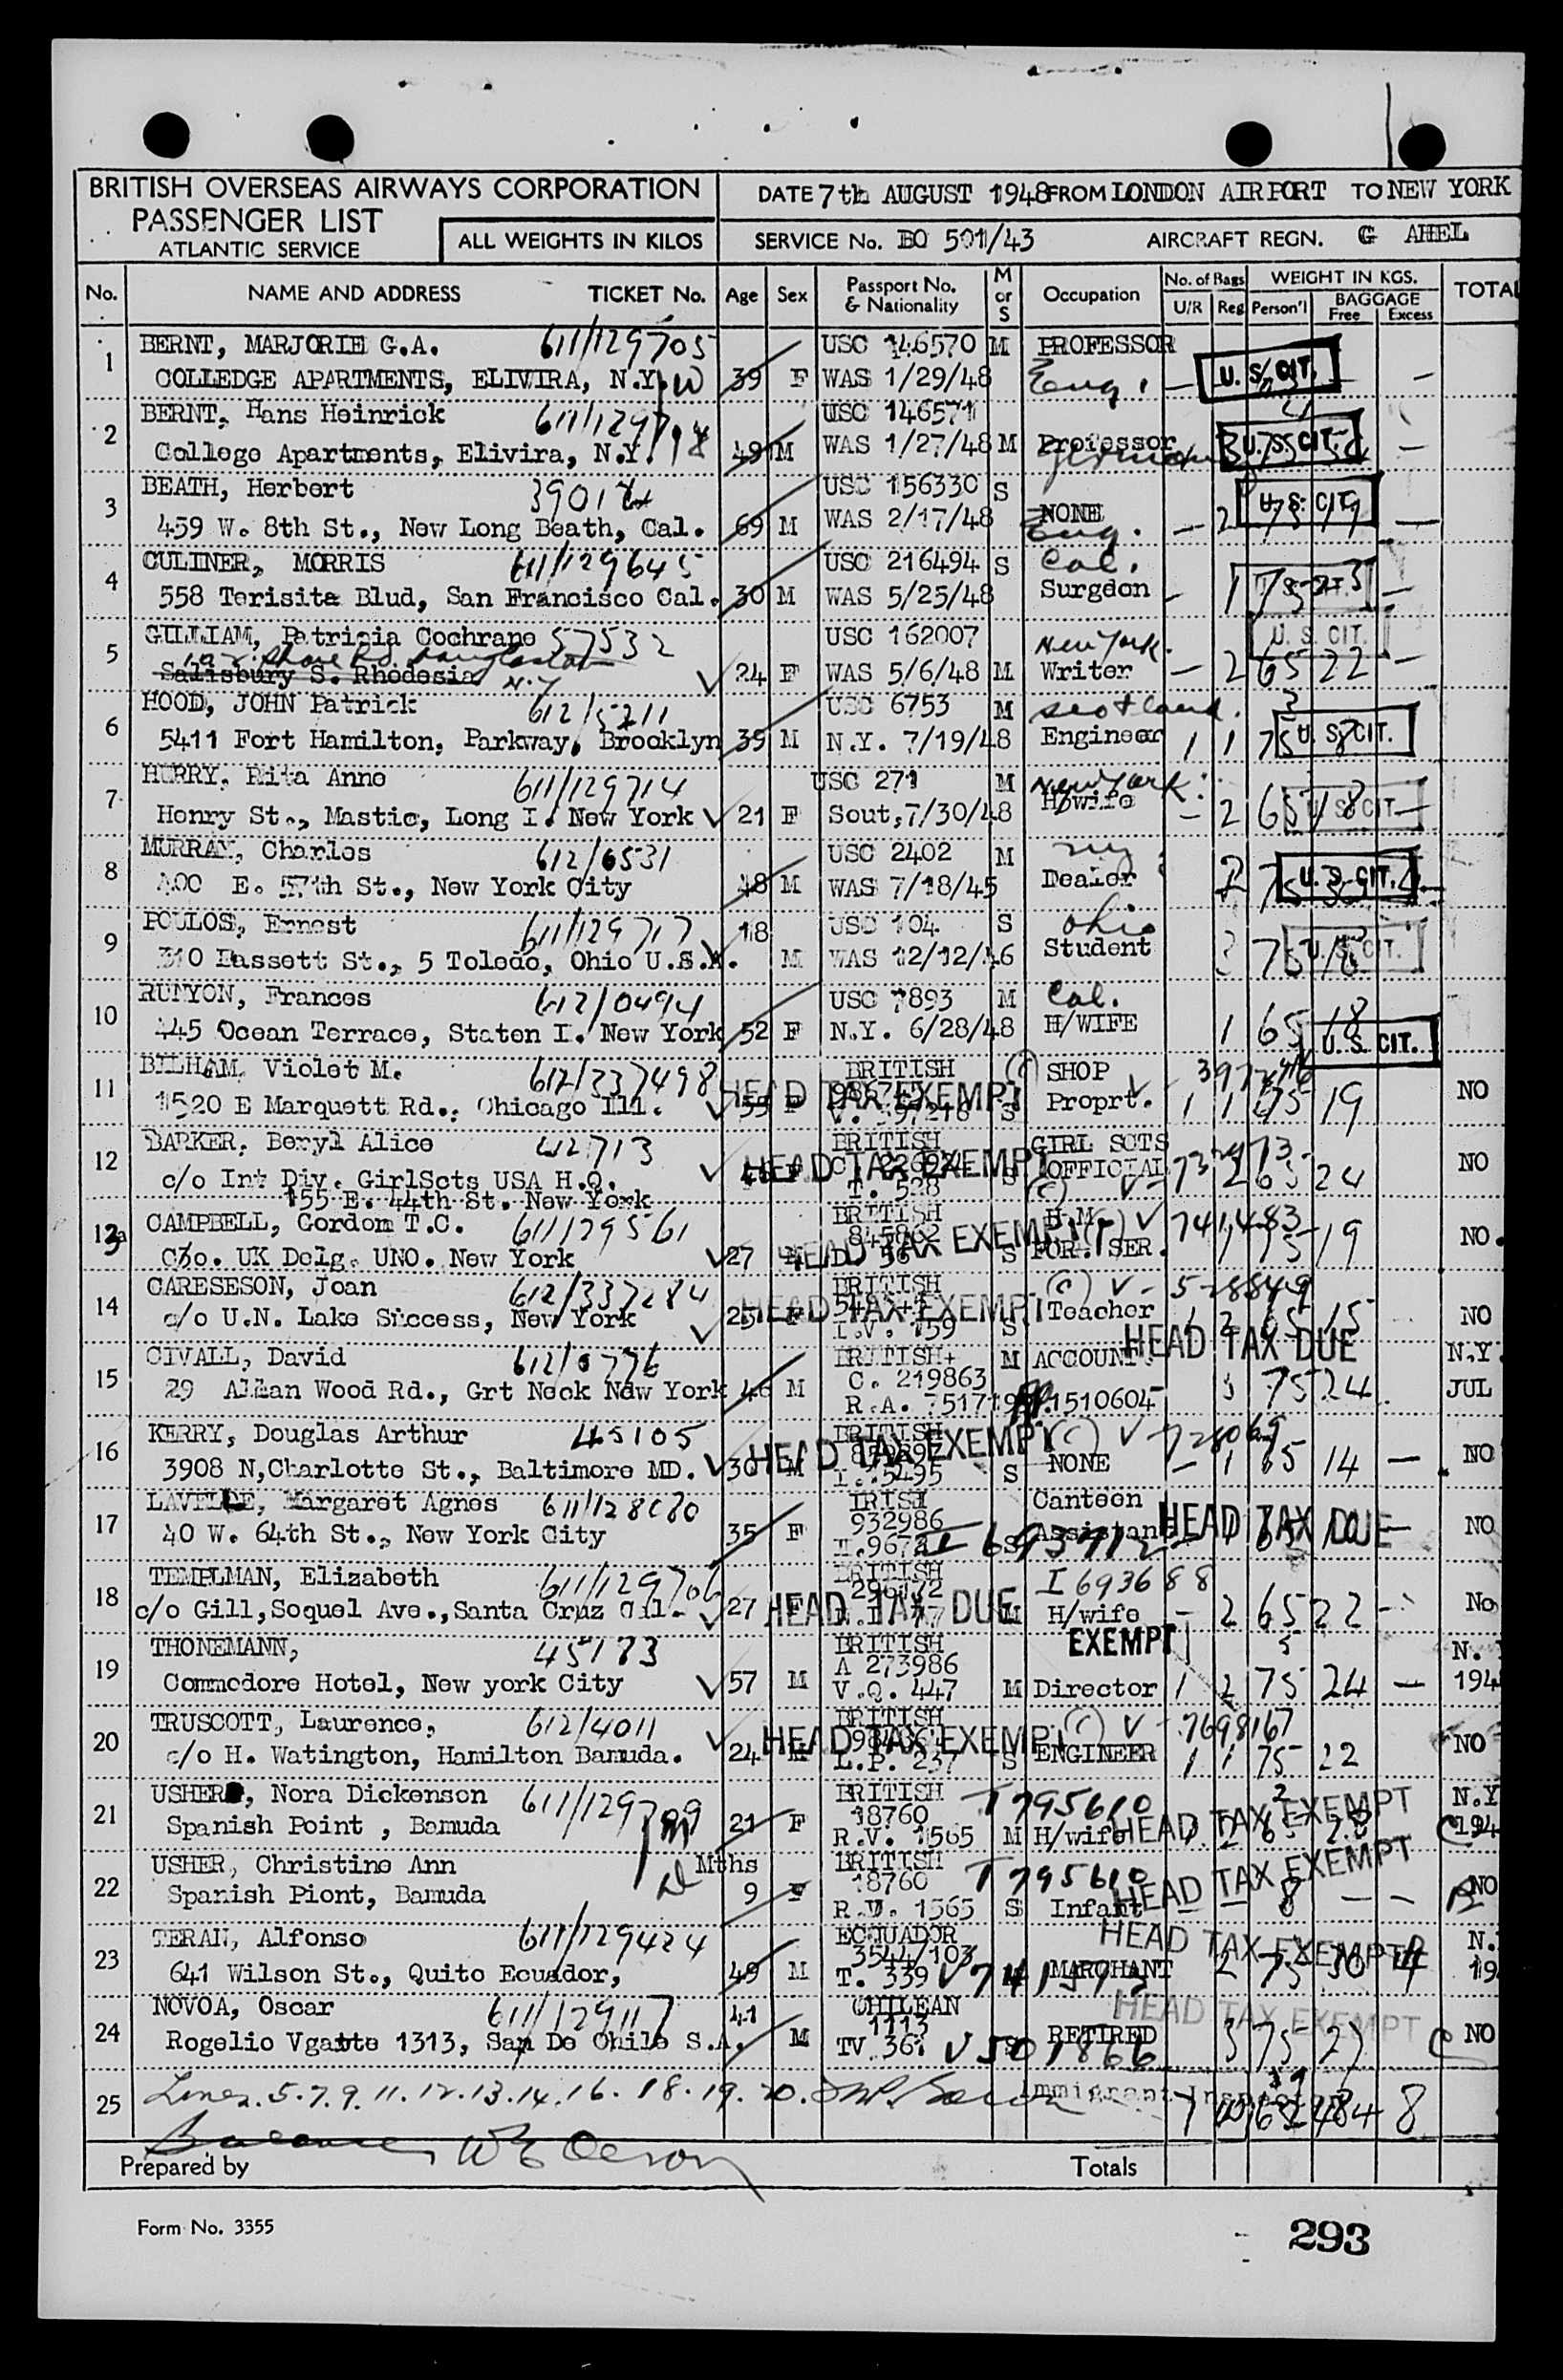 BRITISH OVERSEAS AIRWAYS CORPORATION
PASSENGER LIST
ATLANTIC SERVICE
ALL WEIGHTS IN KILOS
DATE 7th AUGUST 1948 FROM LONDON AIRPORT TO NEW YORK
SERVICE No. BO 501/43 AIRCRAFT REGN. G AHEL
No. NAME AND ADDRESS TICKET No. Age Sex Passport No. & Nationality M or S Occupation No. of Bags U/R Reg WEIGHT IN KGS. Person'l BAGGAGE Free Excess TOTAL
1 BERNT, MARJORIE G.A. 611/129705 USC 146570 M PROFESSOR
COLLEDGE APARTMENTS, ELIVIRA, N.Y. 39 F WAS 1/29/48 Eng. — U. S. CIT. —
2 BERNT, Hans Heinrick USC 146571
College Apartments, Elivira, N.Y. 49 M WAS 1/27/48 M Professor U. S. CIT. —
3 BEATH, Herbert USC 156330 S
459 W. 8th St., New Long Beath, Cal. 69 M WAS 2/17/48 NONE Eng. — 2 75 19 U. S. CIT. —
4 CULINER, MORRIS 611/129645 USC 216494 S Cal.
558 Terisita Blud, San Francisco Cal. 30 M WAS 5/25/48 Surgeon — 1 75 —
5 GILLIAM, Patricia Cochrane 57532 USC 162007 New York. U. S. CIT.
Salisbury S. Rhodesia N.Y 24 F WAS 5/6/48 M Writer — 2 65 22 —
6 HOOD, JOHN Patrick 612/5211 USC 6753 M Scotland.
5411 Fort Hamilton, Parkway, Brooklyn 39 M N.Y. 7/19/48 Engineer 1 1 75 U. S. CIT.
7 HURRY, Rita Anne 611/129714 USC 271 M New York.
Henry St., Mastic, Long I. New York 21 F Sout, 7/30/48 H/wife — 2 65 18 U. S. CIT. —
8 MURRAY, Charles 612/6531 USC 2402 M
400 E. 57th St., New York City 48 M WAS 7/18/45 Dealer 2 75 U. S. CIT.
9 POULOS, Ernest 611/129717 18 USC 104 S Ohio
310 Bassett St., 5 Toledo, Ohio U.S.A. M WAS 12/12/46 Student 3 75 18 U. S. CIT.
10 RUNYON, Frances 612/0494 USC 7893 M Cal.
445 Ocean Terrace, Staten I. New York 52 F N.Y. 6/28/48 H/WIFE 1 65 18 U. S. CIT.
11 BILHAM, Violet M. 612/337498 BRITISH SHOP
1520 E Marquett Rd., Chicago Ill. 55 F HEAD TAX EXEMPT S Proprt. 1 1 19 NO
12 BARKER, Beryl Alice 42713 BRITISH GIRL SCTS
c/o Int Div. GirlScts USA H.Q. HEAD TAX EXEMPT S OFFICIAL 2 65 24 NO
155 E. 44th St. New York T. 528
13 CAMPBELL, Gordon T.C. 611/129561 BRITISH H.M. 741,483
C/o. UK Delg. UNO. New York 27 HEAD TAX EXEMPT S FOR. SER. 1 75 19 NO.
14 CARESESON, Joan 612/337284 BRITISH (C) V - 528849
c/o U.N. Lake Success, New York 25 F HEAD TAX EXEMPT I.V. 159 S Teacher 1 2 65 15 NO
15 CIVALL, David 612/0776 BRITISH M ACCOUNT. HEAD TAX DUE N.Y.
29 Allan Wood Rd., Grt Neck New York 46 M C. 219863 75 24 JUL
R.A. 1510604
16 KERRY, Douglas Arthur 45105 BRITISH (C) V - 728069
3908 N, Charlotte St., Baltimore MD. 30 M HEAD TAX EXEMPT I. 5495 S NONE — 1 65 14 — NO
17 LAVELLE, Margaret Agnes 611/128080 IRISH Canteen
40 W. 64th St., New York City 35 F 932986 Assistant HEAD TAX DUE — NO
18 TEMPLMAN, Elizabeth 611/129706 BRITISH I 693688
c/o Gill, Soquel Ave., Santa Cruz Cal. 27 HEAD TAX DUE M H/wife — 2 65 22 — No
19 THONEMANN, 45173 BRITISH EXEMPT N.
Commodore Hotel, New york City 57 M A 273986 V.Q. 447 M Director 1 2 75 24 — 194
20 TRUSCOTT, Laurence, 612/4011 BRITISH (C) V - 7698167
c/o H. Watington, Hamilton Bamuda. 24 M HEAD TAX EXEMPT L.P. 237 S ENGINEER 1 1 75 22 NO
21 USHER, Nora Dickenson 611/129709 BRITISH T 795610 N.Y
Spanish Point , Bamuda 21 F 18760 R.V. 1565 M H/wife HEAD TAX EXEMPT 194
22 USHER, Christine Ann Mths BRITISH T 795610
Spanish Piont, Bamuda 9 F 18760 R.V. 1565 S Infant HEAD TAX EXEMPT — — 8 — — NO
23 TERAN, Alfonso 611/129424 ECQUADOR HEAD TAX EXEMPT N.
641 Wilson St., Quito Ecuador, 49 M 3544/103 T. 339 MARCHANT 2 75 30 4 19
24 NOVOA, Oscar 611/129117 41 CHILEAN HEAD TAX EXEMPT
Rogelio Vgatte 1313, San De Chile S.A. M 1113 TV 36. V 501866 RETIRED 3 75 27 NO
25 Lines. 5. 7. 9. 11. 12. 13. 14. 16. 18. 19. 20. Immigrant Inspector 484 8
Balance
Prepared by Totals
Form No. 3355
293